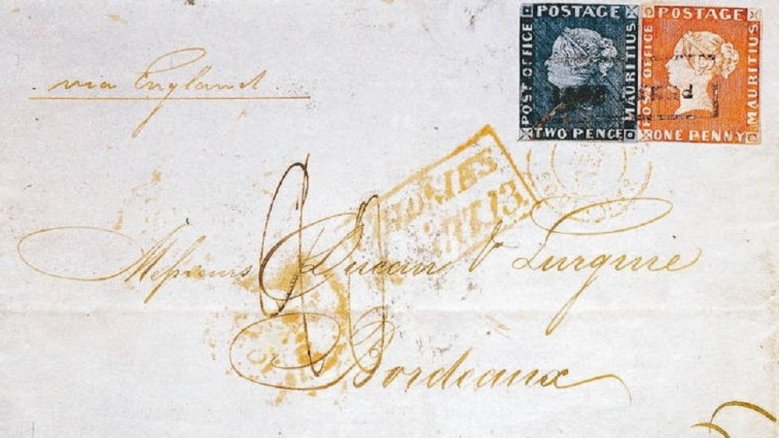 POSTAGE
POST OFFICE
MAURITIUS
TWO PENCE
POSTAGE
POST OFFICE
MAURITIUS
ONE PENNY
via England
13
Messieurs Ducau & Lurguie
Bordeaux